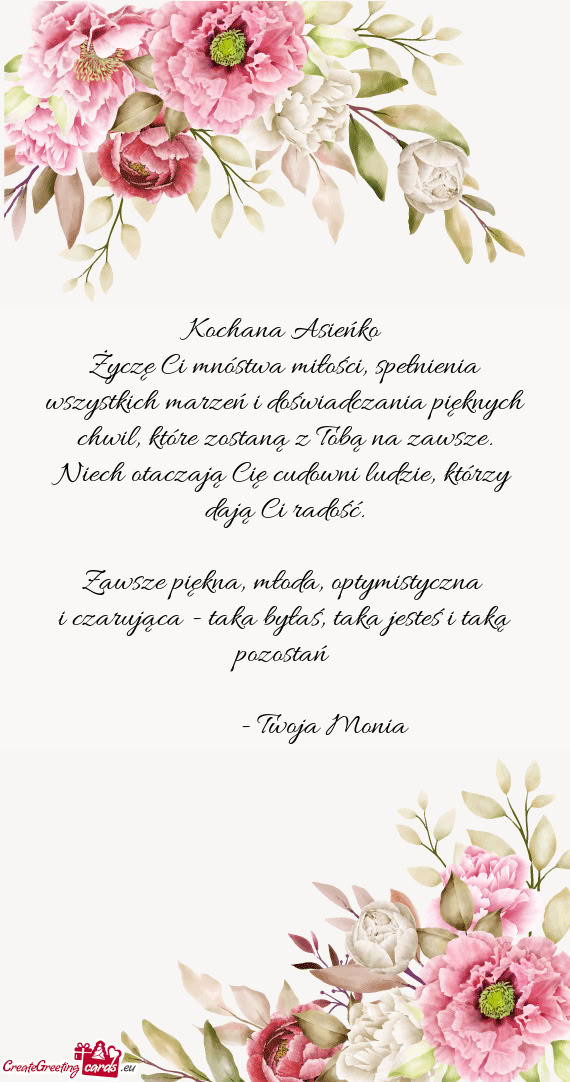 Kochana Asieńko
Życzę Ci mnóstwa miłości, spełnienia
wszystkich marzeń i doświadczania pięknych
chwil, które zostaną z Tobą na zawsze.
Niech otaczają Cię cudowni ludzie, którzy
dają Ci radość.
Zawsze piękna, młoda, optymistyczna
i czarująca - taka byłaś, taka jesteś i taką
pozostań
- Twoja Monia
CreateGreeting cards .eu